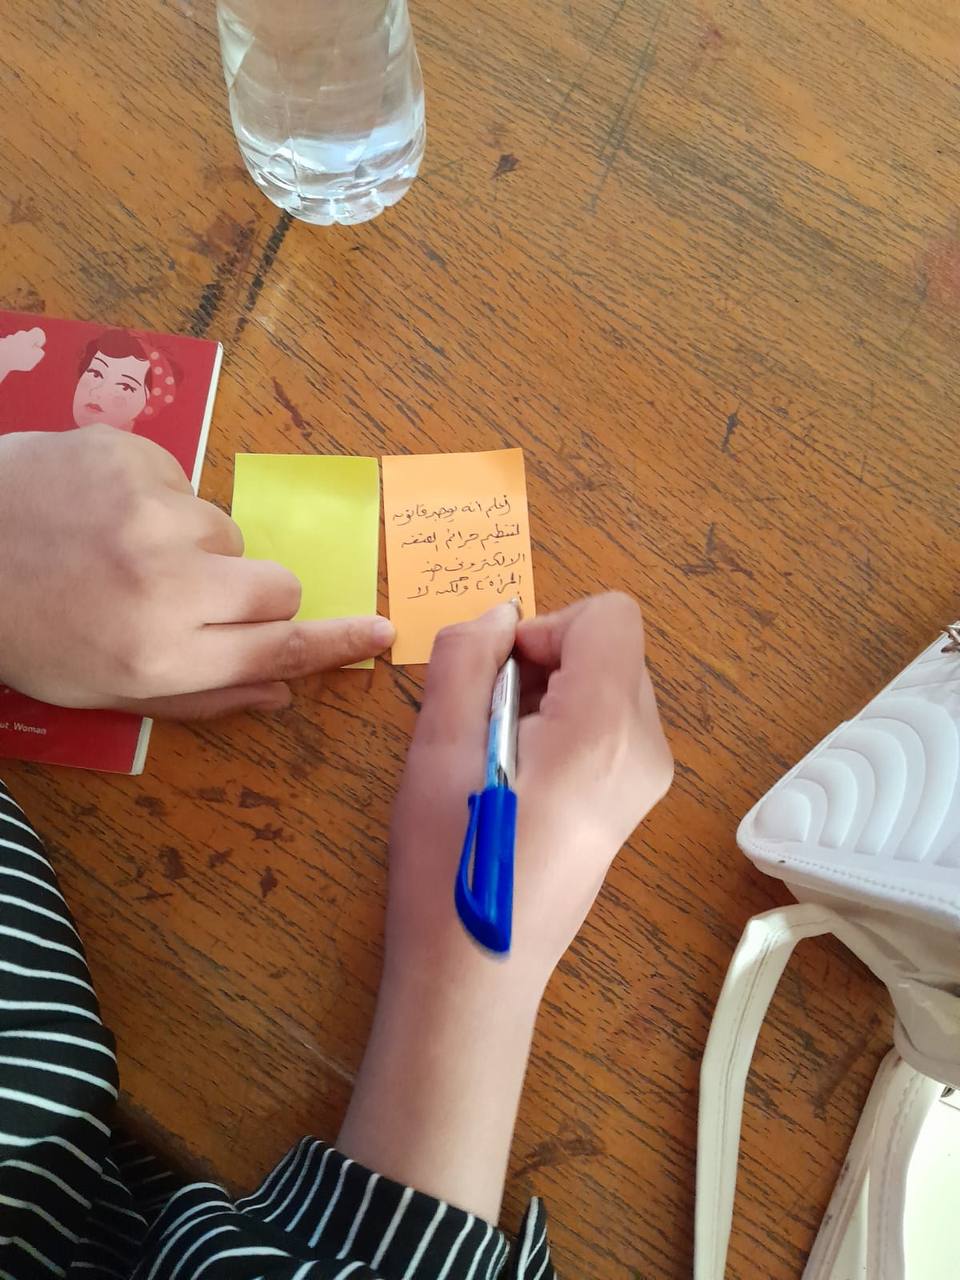 أعلم أنه يوجد قانون
لتنظيم جرائم العنف
الالكتروني ضد
المرأة، ولكن لا
ut_Woman